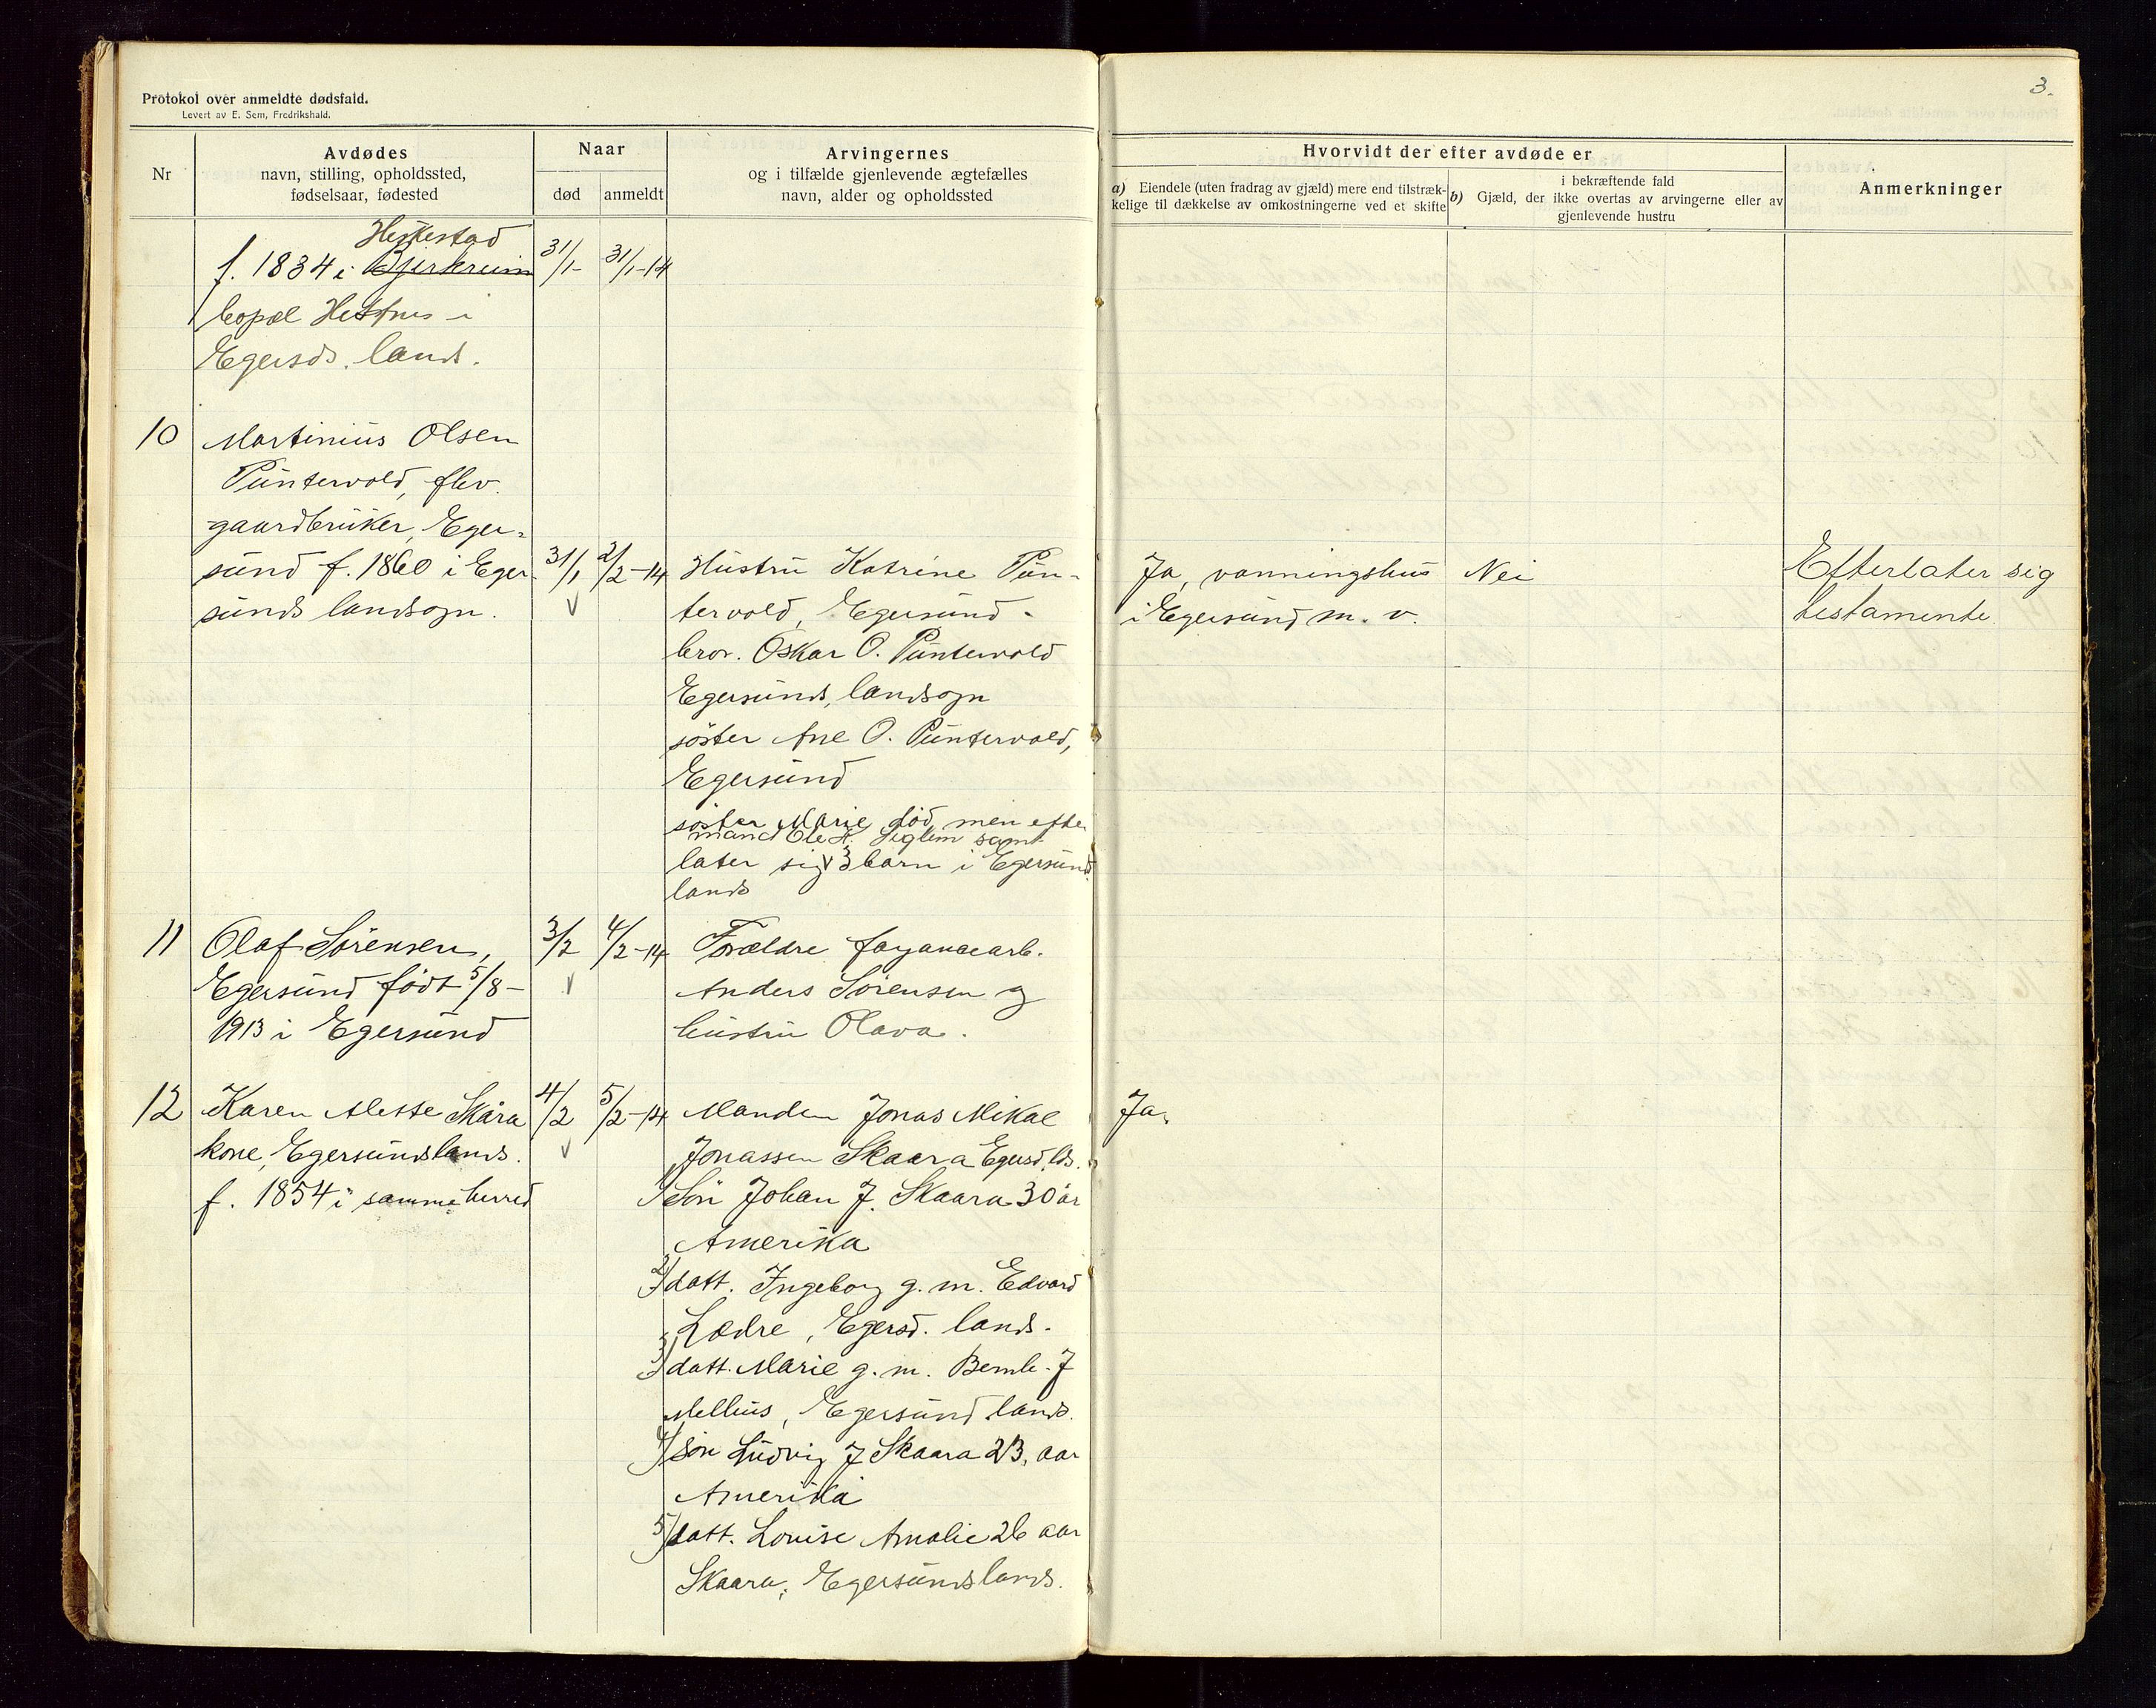 3.
Protokol over anmeldte dødsfald.
Levert av E. Sem, Fredrikshald.
Nr
Avdødes
navn, stilling, opholdssted,
fødselsaar, fødested
Naar
død
anmeldt
Arvingernes
og i tilfælde gjenlevende ægtefælles
navn, alder og opholdssted
Hvorvidt der efter avdøde er
a) Eiendele (uten fradrag av gjæld) mere end tilstræk-
kelige til dækkelse av omkostningerne ved et skifte
i bekræftende fald
b) Gjæld, der ikke overtas av arvingerne eller av
gjenlevende hustru
Anmerkninger
Heskestad
f. 1834 i Bjerkreim
31/1-
31/1-14
bopæl Hestnes i
Egersds. lands.
10
Martinius Olsen
Puntervold, flev.
gaardbruker, Eger-
sund f. 1860 i Eger-
sunds landsogn.
31/1
2/2-14
Hustru Katrine Pun-
tervold, Egersund.
bror. Oskar O. Puntervold
Egersunds landsogn
söster Ane O. Puntervold,
Egersund
söster Marie död men efter
mand Ole A. Seglem samt
later sig 3 barn i Egersund
lands
Ja, vaaningshus
i Egersund m. v.
Nei
Efterlater sig
testamente.
11
Olaf Sörensen,
Egersund födt 5/8-
1913 i Egersund
3/2
4/2-14
Forældre fayancearb.
Anders Sörensen og
hustru Olava.
12
Karen Mette Skåra
kone, Egersunds lands.
f. 1854 i samme herred
4/2
5/2-14
Manden Jonas Mikal
Jonassen Skaara Egersd. lds.
1) Sön Johan J. Skaara 30 år
Amerika
2) datt. Ingeborg g. m. Edvard
Lædre, Egersd. lands.
3) datt. Marie g. m. Bernh. J
Mellius, Egersund lands.
4) sön Ludvig J Skaara 23, aar
Amerika
5) datt. Louise Amalie 26 aar
Skaara, Egersunds lands.
Ja.